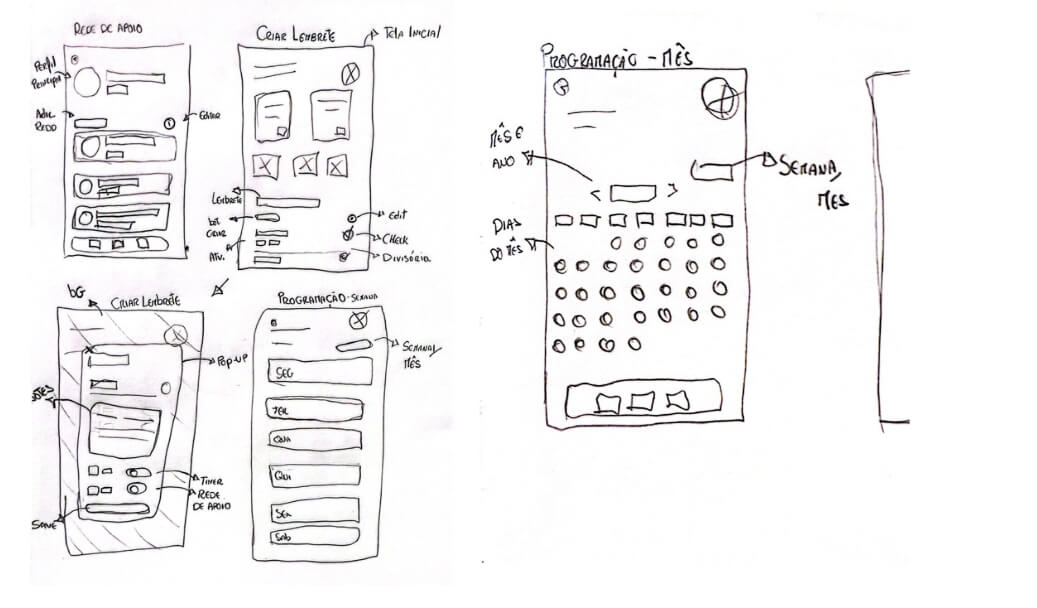 REDE DE APOIO
PERFIL
PRINCIPAL
REDE
EDITAR
CRIAR LEMBRETE
TELA INICIAL
LEMBRETE
CRIAR
ATIV.
EDIT
CHECK
DIVISÓRIA
BG
CRIAR LEMBRETE
POP-UP
TIMER
REDE
DE APOIO
SAVE
PROGRAMAÇÃO - SEMANA
SEMANA/
MÊS
SEG
TER
QUA
QUI
SEX
SAB
PROGRAMAÇÃO - MÊS
MÊS E
ANO
SEMANA/
MES
DIAS
DO MÊS